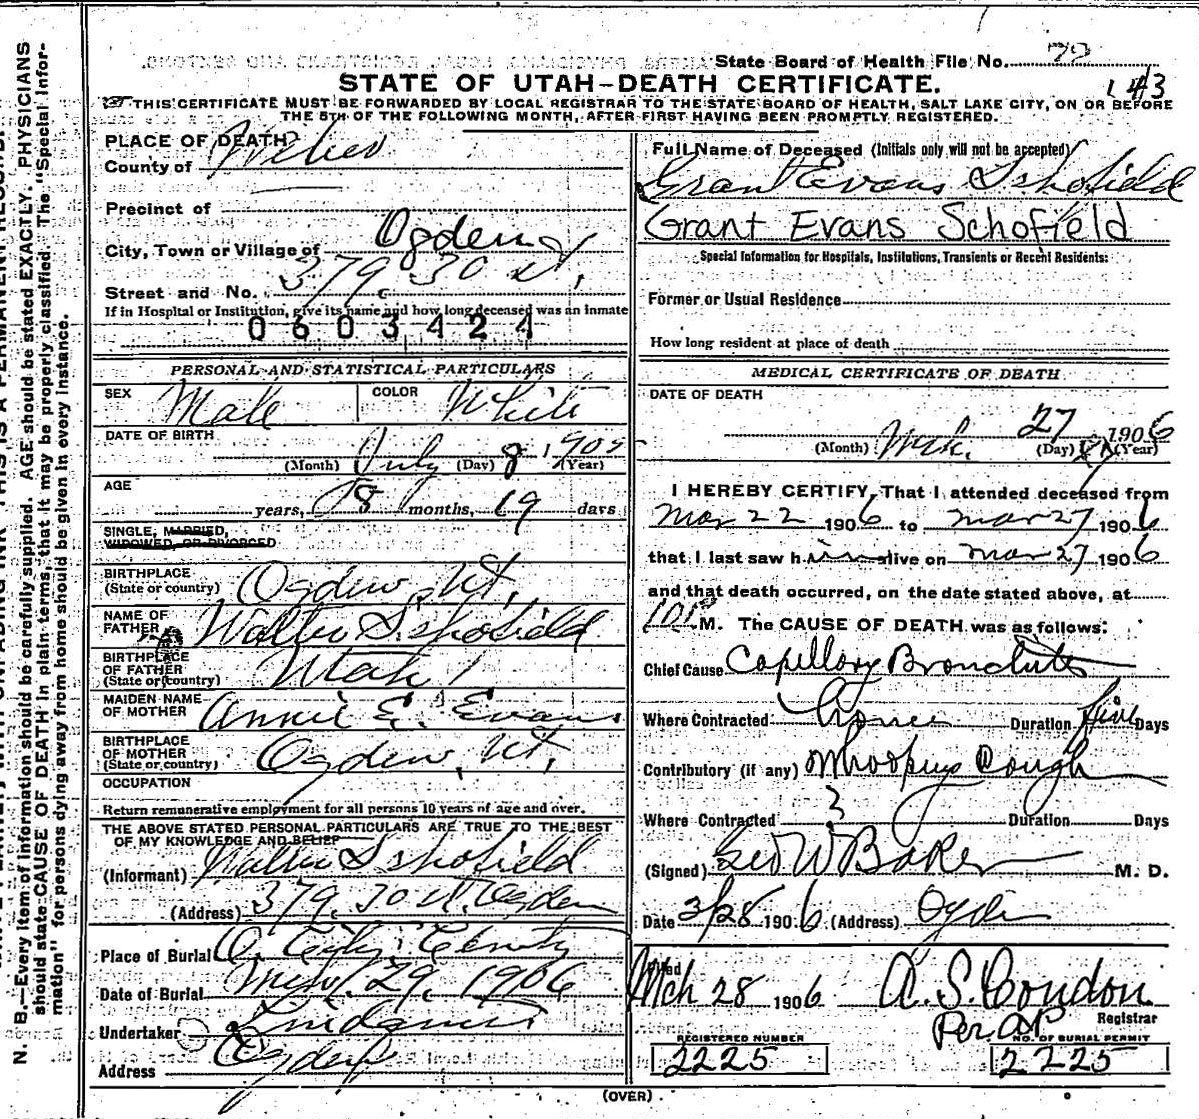 State Board of Health File No. 72
143
STATE OF UTAH–DEATH CERTIFICATE.
THIS CERTIFICATE MUST BE FORWARDED BY LOCAL REGISTRAR TO THE STATE BOARD OF HEALTH, SALT LAKE CITY, ON OR BEFORE
THE 5TH OF THE FOLLOWING MONTH, AFTER FIRST HAVING BEEN PROMPTLY REGISTERED.
PLACE OF DEATH
County of Weber
Precinct of
City, Town or Village of Ogden
Street and No. 379, 30 St,
If in Hospital or Institution, give its name and how long deceased was an inmate
0603424
PERSONAL AND STATISTICAL PARTICULARS
SEX Male COLOR White
DATE OF BIRTH
(Month) July (Day) 8, 1905 (Year)
AGE
years, 8 months, 19 days
SINGLE, MARRIED,
WIDOWED, OR DIVORCED
BIRTHPLACE
(State or country) Ogden, Ut,
NAME OF
FATHER Walter Schofield
BIRTHPLACE
OF FATHER
(State or country) Utah
MAIDEN NAME
OF MOTHER Annie E. Evans
BIRTHPLACE
OF MOTHER
(State or country) Ogden, Ut,
OCCUPATION
Return remunerative employment for all persons 10 years of age and over.
THE ABOVE STATED PERSONAL PARTICULARS ARE TRUE TO THE BEST
OF MY KNOWLEDGE AND BELIEF
(Informant) Walter Schofield
(Address) 379, 30 St. Ogden
Place of Burial O. City
Date of Burial 29, 1906
Undertaker
Address Ogden
Full Name of Deceased (Initials only will not be accepted)
Grant Evans Schofield
Grant Evans Schofield
Special Information for Hospitals, Institutions, Transients or Recent Residents:
Former or Usual Residence
How long resident at place of death
MEDICAL CERTIFICATE OF DEATH
DATE OF DEATH
(Month) Mch. 27 (Day) 1906 (Year)
I HEREBY CERTIFY, That I attended deceased from
Mar 22 1906 to Mar 27 1906
that I last saw him alive on Mar 27 1906
and that death occurred, on the date stated above, at
M. The CAUSE OF DEATH was as follows:
Chief Cause Capillary Bronchitis
Where Contracted Home Duration five Days
Contributory (if any) Whooping Cough
Where Contracted ? Duration Days
(Signed) Geo W Baker M. D.
Date 3/28 1906 (Address) Ogden
Filed
Mch 28 1906 A. S. Condon
Registrar
Per. AP
REGISTERED NUMBER
2225
NO. OF BURIAL PERMIT
2225
(OVER)
N. B.—Every item of information should be carefully supplied. AGE should be stated EXACTLY. PHYSICIANS
should state CAUSE OF DEATH in plain terms, that it may be properly classified. The "Special Infor-
mation" for persons dying away from home should be given in every instance.